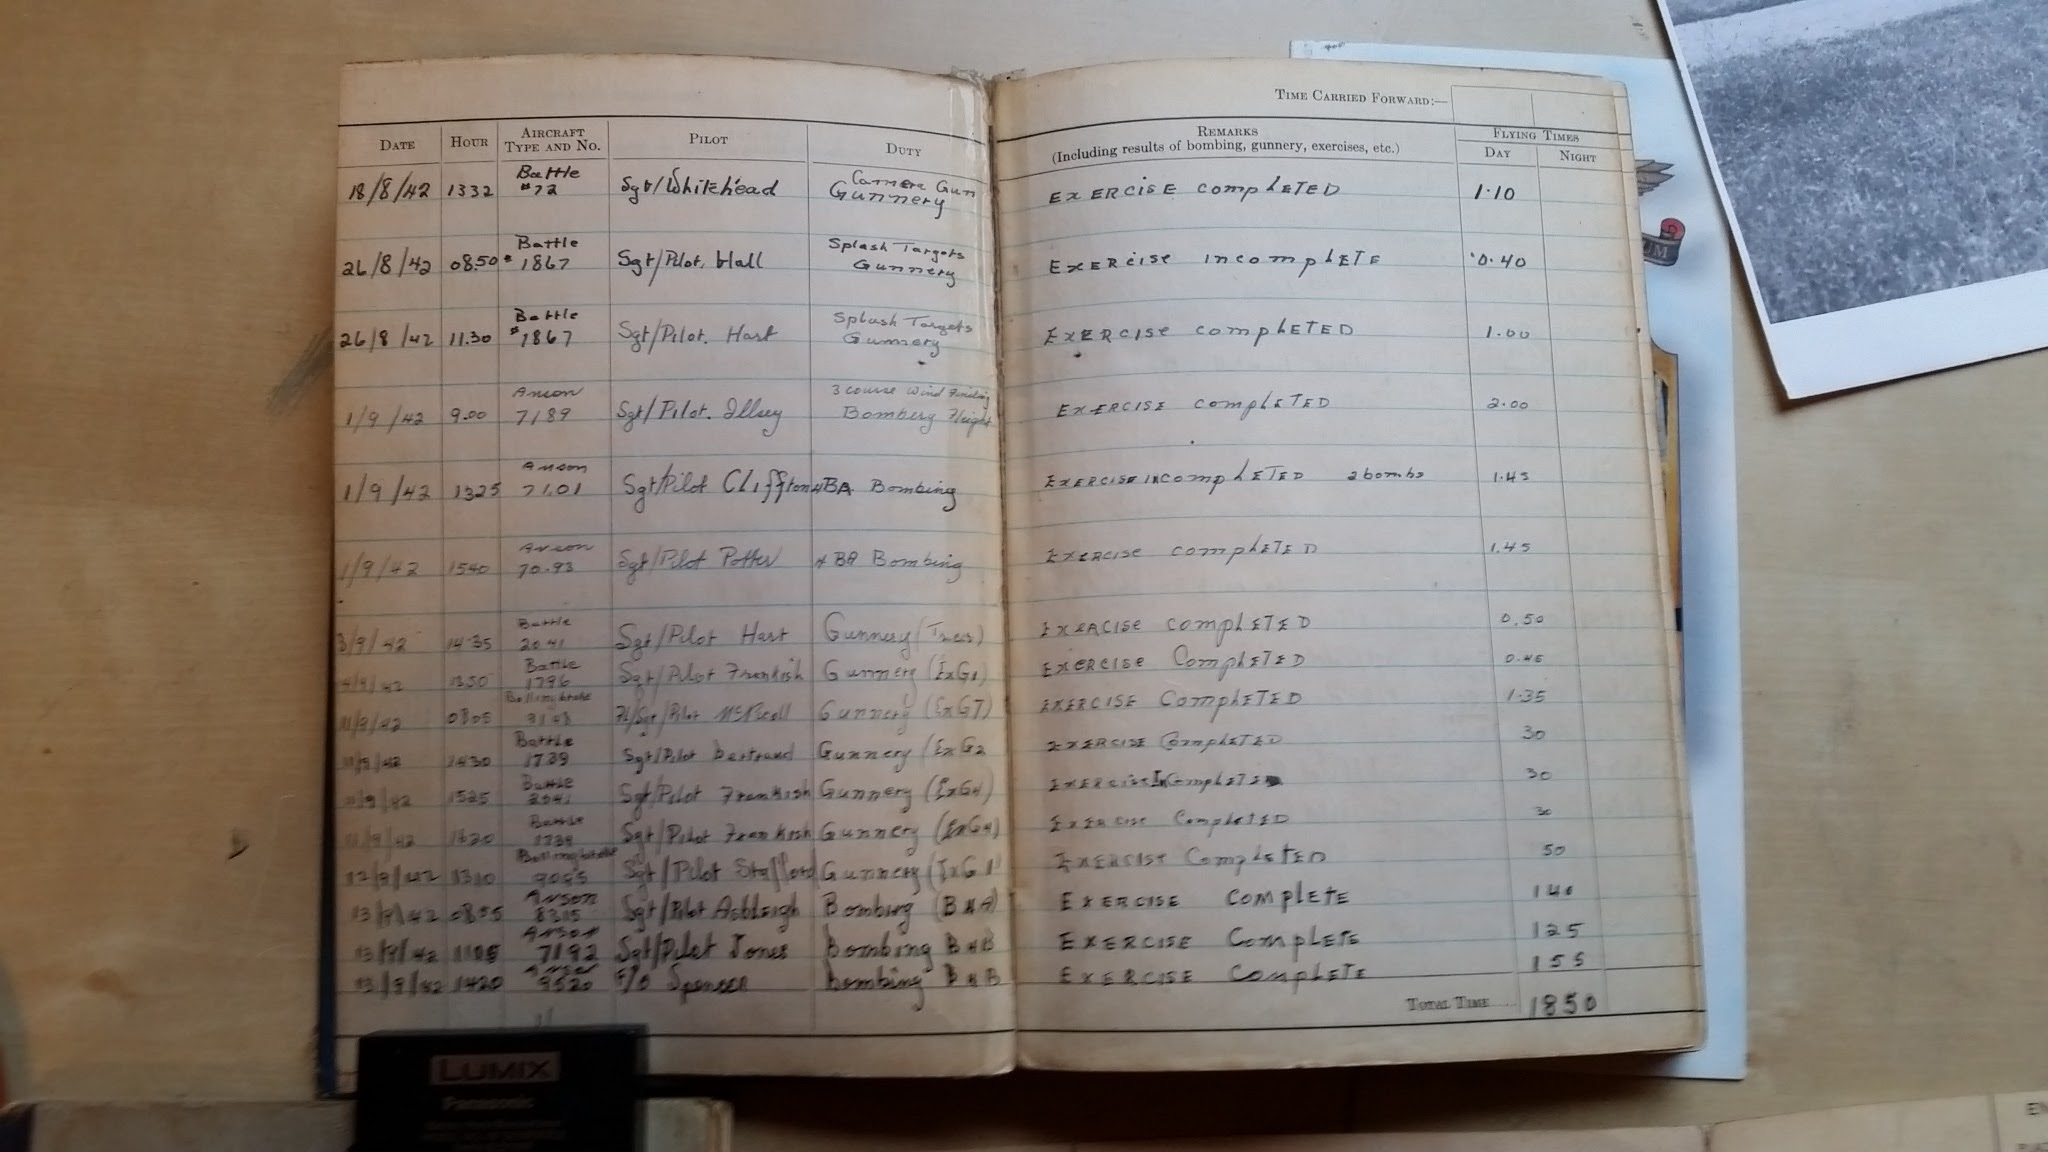 TIME CARRIED FORWARD:—
DATE HOUR AIRCRAFT TYPE AND NO. PILOT DUTY REMARKS (Including results of bombing, gunnery, exercises, etc.) FLYING TIMES DAY NIGHT
18/8/42 1332 Battle #72 Sgt/Whitehead Camera Gun Gunnery EXERCISE COMPLETED 1.10
26/8/42 08.50 Battle # 1867 Sgt/Pilot. Hall Splash Targets Gunnery EXERCISE INCOMPLETE 0.40
26/8/42 11.30 Battle # 1867 Sgt/Pilot. Hart Splash Targets Gunnery EXERCISE COMPLETED 1.00
1/9/42 9.00 Anson 7189 Sgt/Pilot. Illsey 3 course Wind Finding EXERCISE COMPLETED 2.00
1/9/42 1325 Anson 71.01 Sgt/Pilot Cliffton BA Bombing EXERCISE INCOMPLETED 2 bombs 1.45
1/9/42 1540 Anson 70.93 Sgt/Pilot Potter BA Bombing EXERCISE COMPLETED 1.45
3/9/42 14.35 Battle 20.41 Sgt/Pilot Hart Gunnery EXERCISE COMPLETED 0.50
Battle 1796 Sgt/Pilot Frankish Gunnery EXERCISE COMPLETED 0.45
0805 Bolingbroke Gunnery (ExG7) EXERCISE COMPLETED 1.35
1430 Battle 1739 Sgt/Pilot bertrand Gunnery (ExG2 EXERCISE COMPLETED 30
11/9/42 1525 Battle 2041 Sgt/Pilot Frankish Gunnery (ExG4) EXERCISE InComplete 30
11/9/42 1620 Battle 1739 Sgt/Pilot Frankish Gunnery (ExG4) EXERCISE COMPLETED 30
12/9/42 1310 Bolingbroke Sgt/Pilot Stafford Gunnery EXERCISE COMPLETED 50
13/9/42 0855 Anson Sgt/Pilot Ashleigh Bombing EXERCISE COMPLETE 140
13/9/42 1105 Anson 7192 Sgt/Pilot Jones bombing EXERCISE COMPLETE 125
13/9/42 1420 Anson 9520 F/O Spencer bombing EXERCISE COMPLETE 155
TOTAL TIME .... 1850
LUMIX
Panasonic